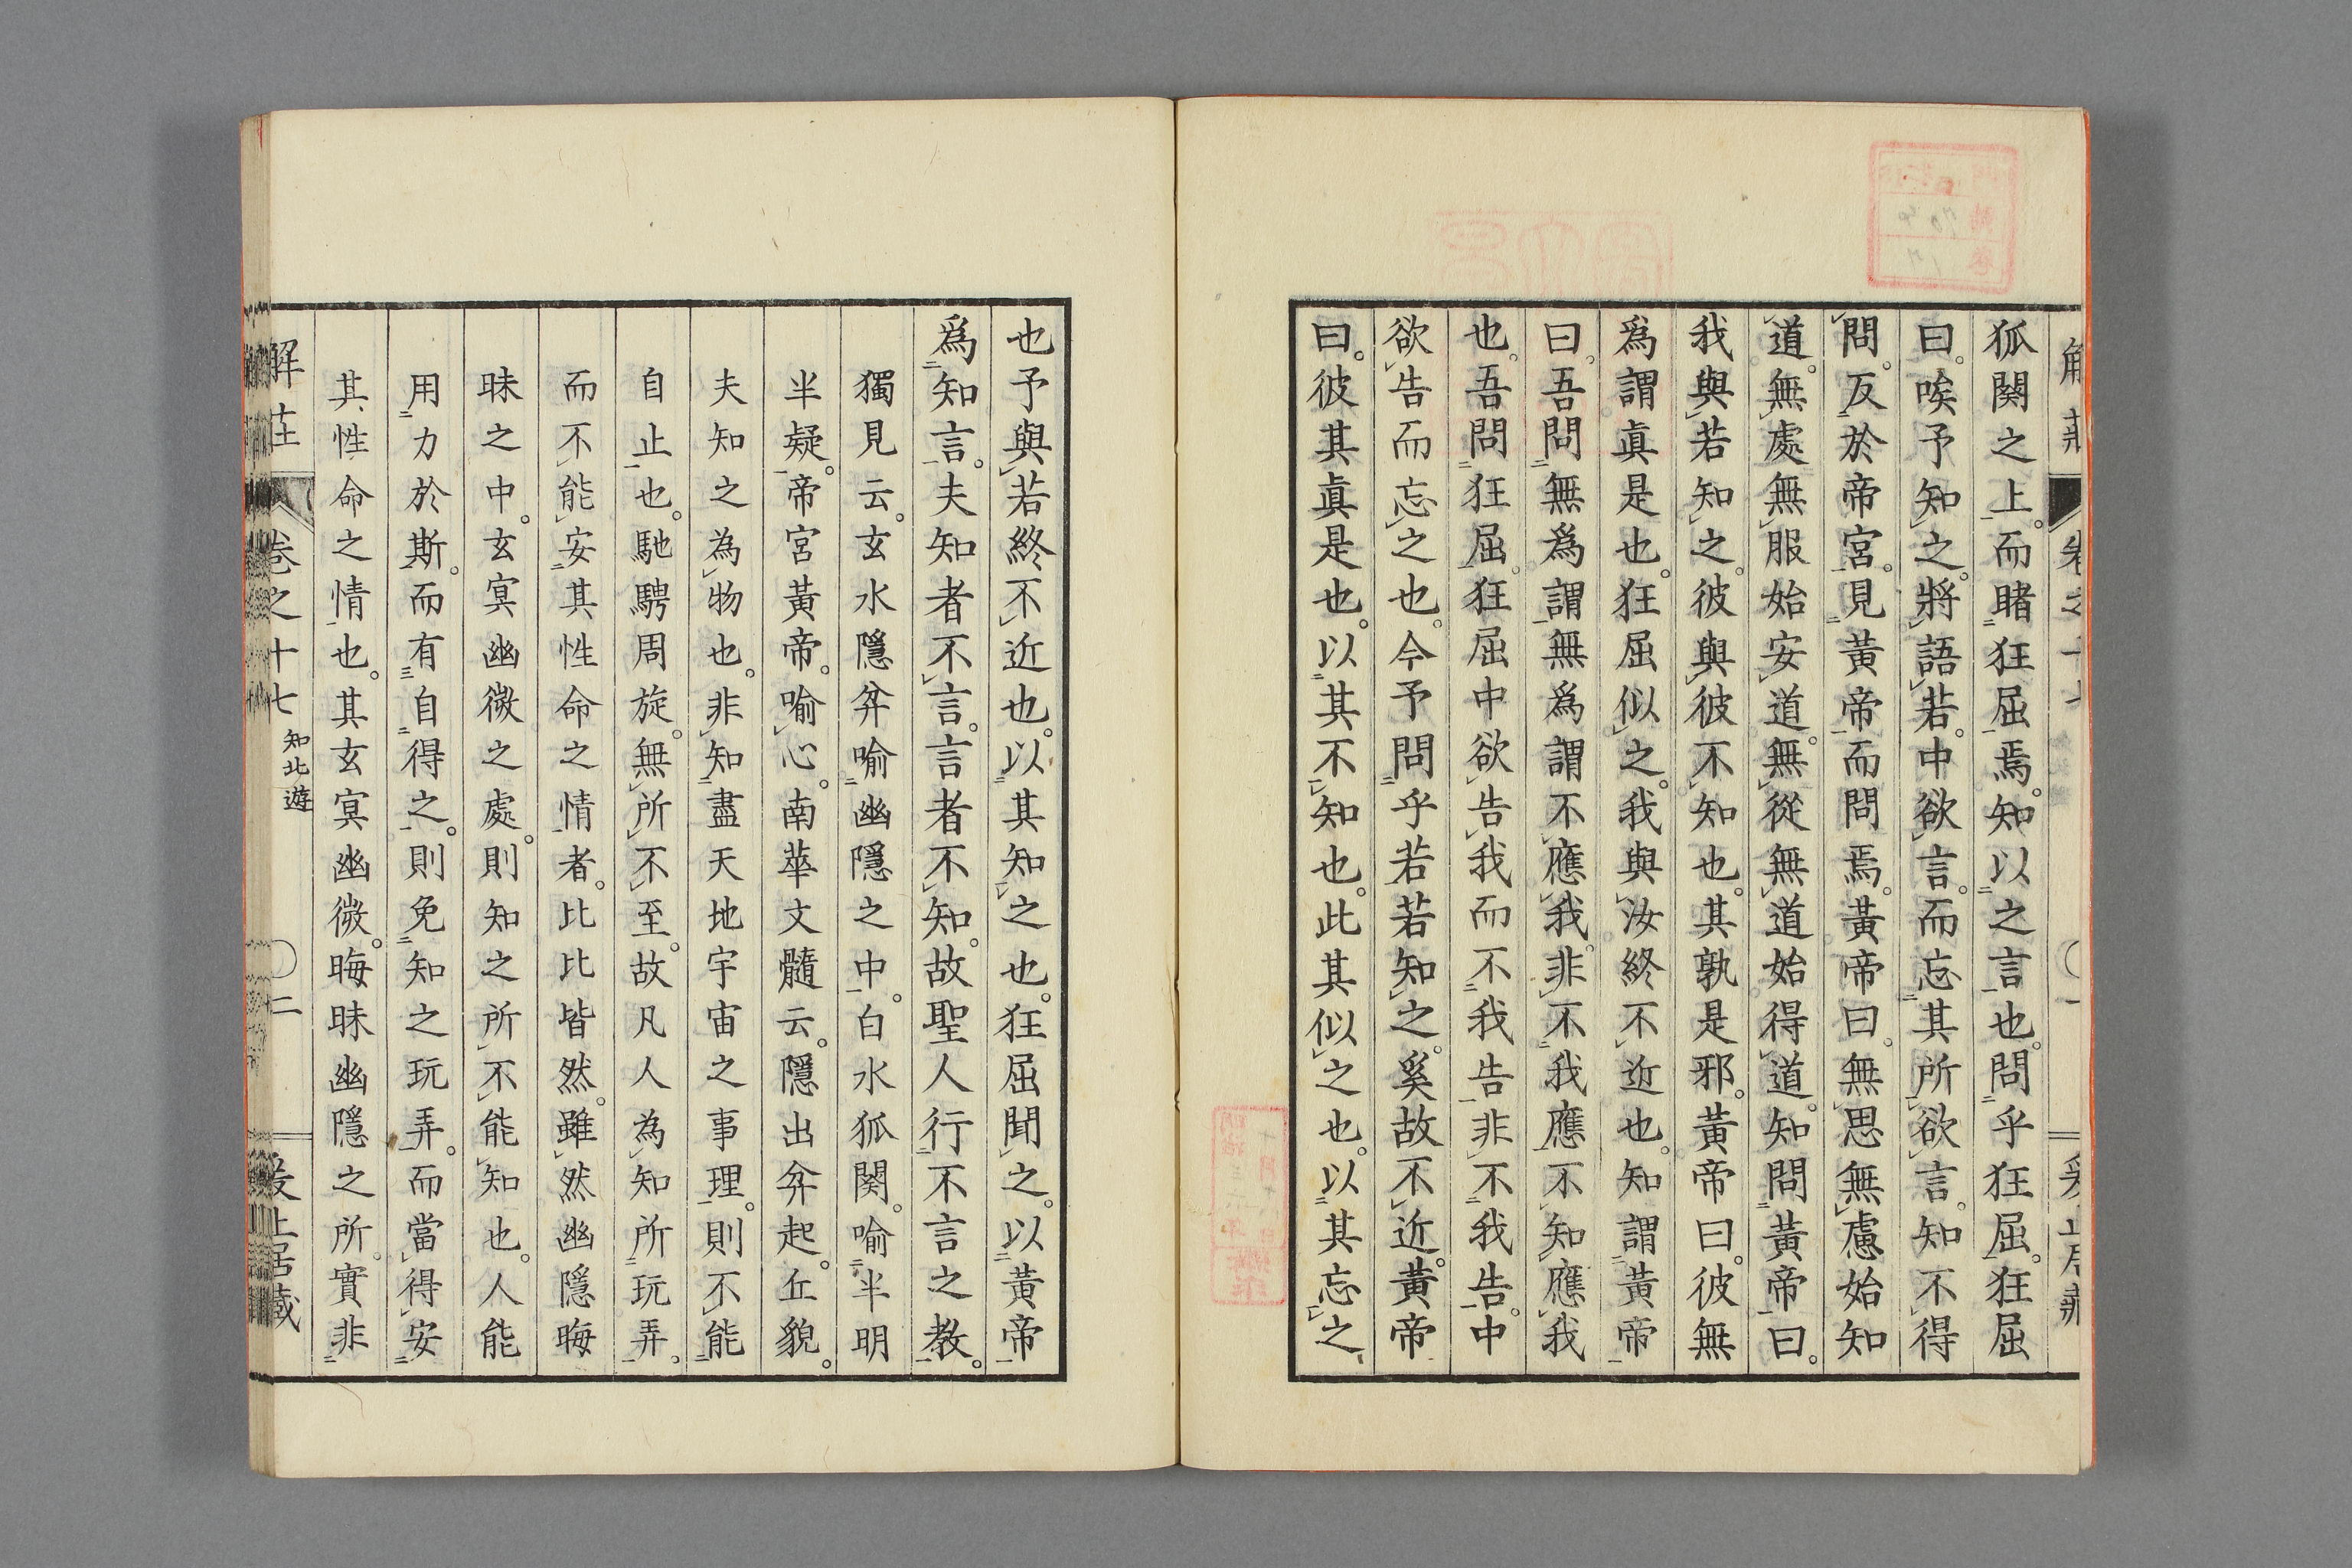 狐闋之上。而睹狂屈焉。知以之言也。問乎狂屈。狂屈
曰。唉予知之。將語若。中欲言。而忘其所欲言。知不得
問。反於帝宮。見黃帝而問焉。黃帝曰。無思無慮始知
道。無處無服始安道。無從無道始得道。知問黃帝曰。
我與若知之。彼與彼不知也。其孰是邪。黃帝曰。彼無
爲謂眞是也。狂屈似之。我與汝終不近也。知謂黃帝
曰。吾問無爲謂無爲謂不應我。非不我應不知應我
也。吾問狂屈。狂屈中欲告我而不我告非不我告。中
欲告而忘之也。今予問乎若若知之。奚故不近。黃帝
曰。彼其眞是也。以其不知也。此其似之也。以其忘之
也予與若終不近也。以其知之也。狂屈聞之。以黃帝
爲知言。夫知者不言。言者不知。故聖人行不言之教。
獨見云。玄水隱弅喻幽隱之中。白水狐闋。喻半明
半疑。帝宮黃帝。喻心。南華文髓云。隱出弅起。丘貌。
夫知之為物也。非知盡天地宇宙之事理。則不能
自止也。馳騁周旋。無所不至。故凡人為知所玩弄。
而不能安其性命之情者。比比皆然。雖然幽隱晦
昧之中。玄冥幽微之處。則知之所不能知也。人能
用力於斯。而有自得之。則免知之玩弄。而當得安
其性命之情也。其玄冥幽微。晦昧幽隱之所。實非
解莊
卷之十七
知北遊
二